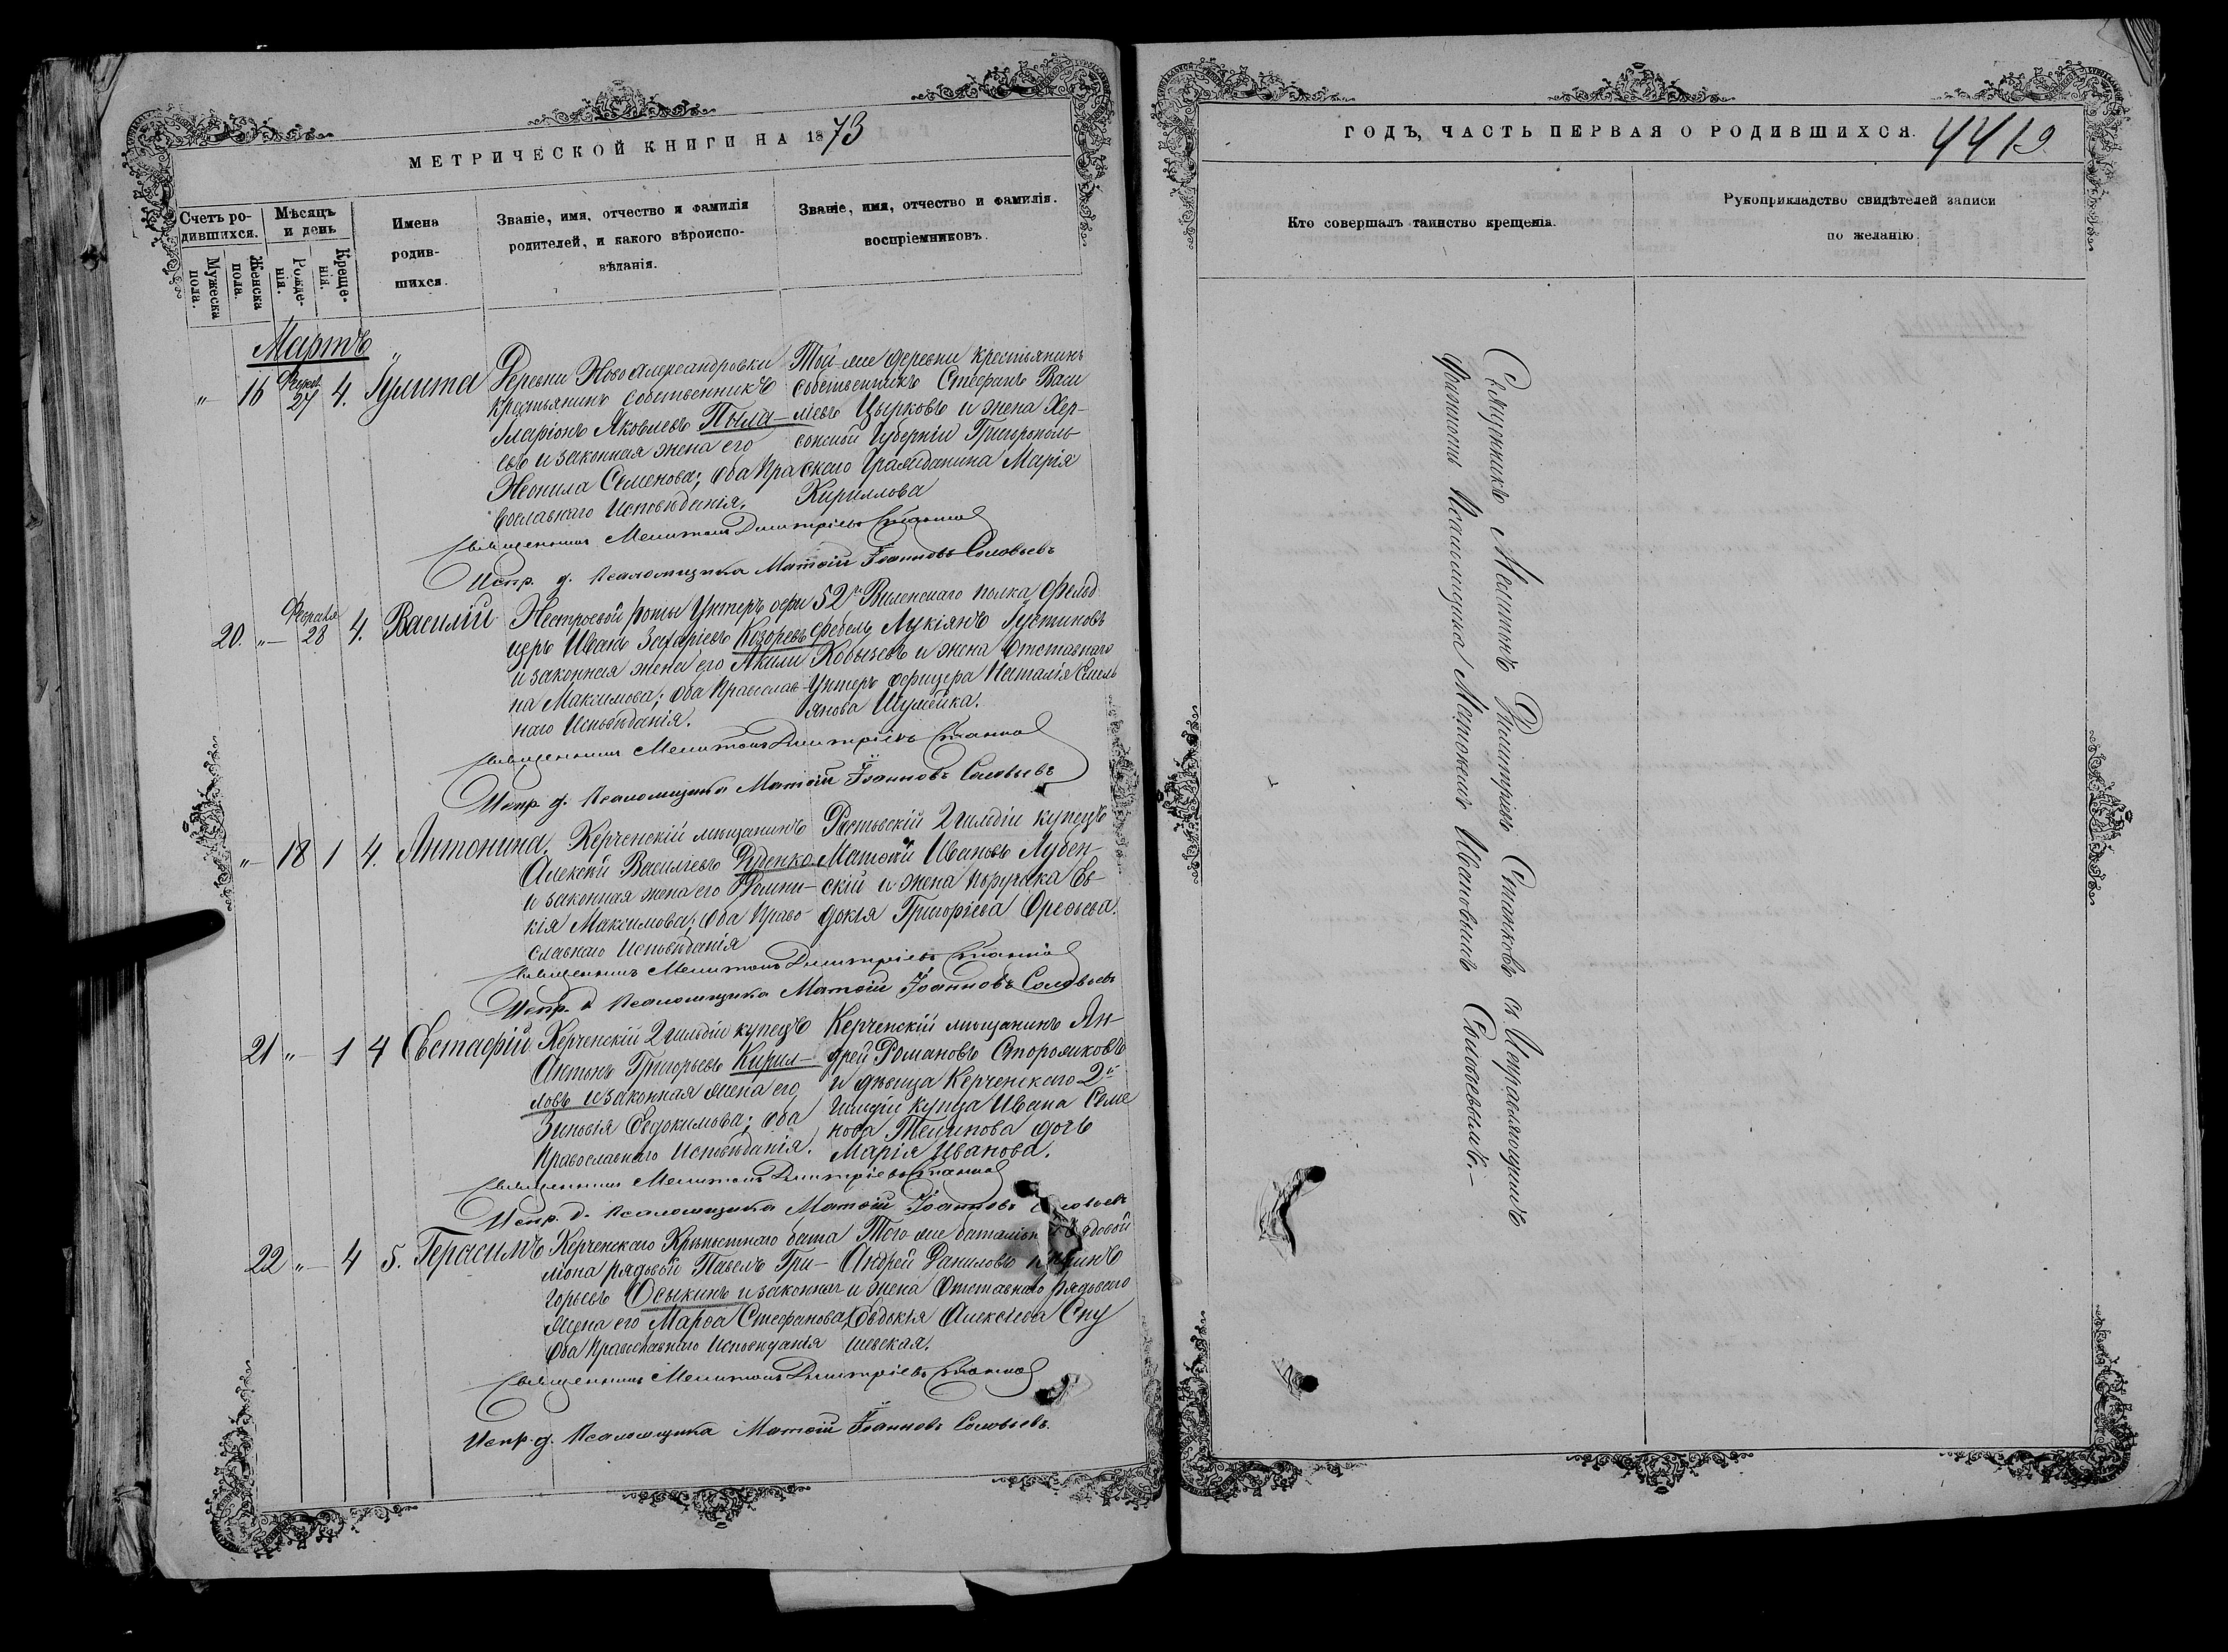 МЕТРИЧЕСКОЙ КНИГИ НА 1873
Счетъ ро-
дившихся.
Мужеска
пола.
Женска
пола.
Мѣсяцъ
и день
Рожде-
нія.
Креще-
нія.
Имена
родив-
шихся.
Званіе, имя, отчество и фамилія
родителей, и какого вѣроиспо-
вѣданія.
Званіе, имя, отчество и фамилія.
воспріемниковъ.
Мартъ
„ 16 Февр. 27 4. Іулита
Деревни Новоалександровки
крестьянинъ собственникъ
Иларіонъ Яковлевъ Пыла-
евъ и законная жена его
Неонила Семенова; оба пра
вославнаго Исповѣданія.
Той-же деревни крестьянинъ
собственникъ Стефанъ Васи
левъ Цырковъ и жена Хер-
сонской Губерніи Григорополь-
скаго Гражданина Марія
Кириллова
Священникъ Мелитонъ Димитріевъ Станковъ
Испр. д. Псаломщика Матѳій Іоанновъ Соловьевъ
20. „ Февраля 28 4. Василій
Нестроевой роты Унтеръ офи
церъ Иванъ Захаріевъ Козоревъ
и законная жена его Акили
на Максимова; оба Православ
наго Исповѣданія.
52го Виленскаго полка Фельд
фебель Лукіянъ Іустиновъ
Кобычевъ и жена Отставнаго
Унтеръ офицера Наталія Емель
янова Шулейка.
Священникъ Мелитонъ Димитріевъ Станковъ
Испр. д. Псаломщика Матѳій Іоанновъ Соловьевъ
„ 18 1 4. Антонина.
Керченскій мѣщанинъ
Алексѣй Василіевъ Руденко
и законная жена его Домни-
кія Максимова; оба Право-
славнаго Исповѣданія
Растовскій 2 гильдіи купецъ
Матѳей Ивановъ Лубен-
скій и жена поручика Ев-
докія Григоріева Орефьева.
Священникъ Мелитонъ Димитріевъ Станковъ
Испр. д. Псаломщика Матѳій Іоанновъ Соловьевъ
21 „ 1 4 Евстафій
Керченскій 2 гильдіи купецъ
Антонъ Григорьевъ Кирил-
ловъ и законная жена его
Зиновія Евдокимова; оба
Православнаго Исповѣданія.
Керченскій мѣщанинъ Ан-
дрей Романовъ Сторожиковъ
и дѣвица Керченскаго 2й
гильдіи купца Ивана Семе
нова Телипова дочь
Марія Иванова.
Священникъ Мелитонъ Димитріевъ Станковъ
Испр. д. Псаломщика Матѳій Іоанновъ Соловьевъ
22 „ 4 5. Герасимъ
Керченскаго Крѣпостнаго бата
ліона рядовой Павелъ Гри-
горьевъ Осыкинъ и законная
жена его Марѳа Стефанова
Оба Православнаго Исповѣданія
Того же баталіона рядовой
Андрей Даниловъ
и жена Отставнаго рядоваго
Евдокія Алексіева Спу
шевская.
Священникъ Мелитонъ Димитріевъ Станковъ
Испр. д. Псаломщика Матѳій Іоанновъ Соловьевъ.
ГОДЪ, ЧАСТЬ ПЕРВАЯ О РОДИВШИХСЯ. 4419
Кто совершалъ таинство крещенія.
Рукоприкладство свидѣтелей записи
по желанію
Священникъ Мелитонъ Димитріевъ Станковъ съ Исправляющимъ
должность Псаломщика Матѳіемъ Ивановымъ Соловьевымъ.-